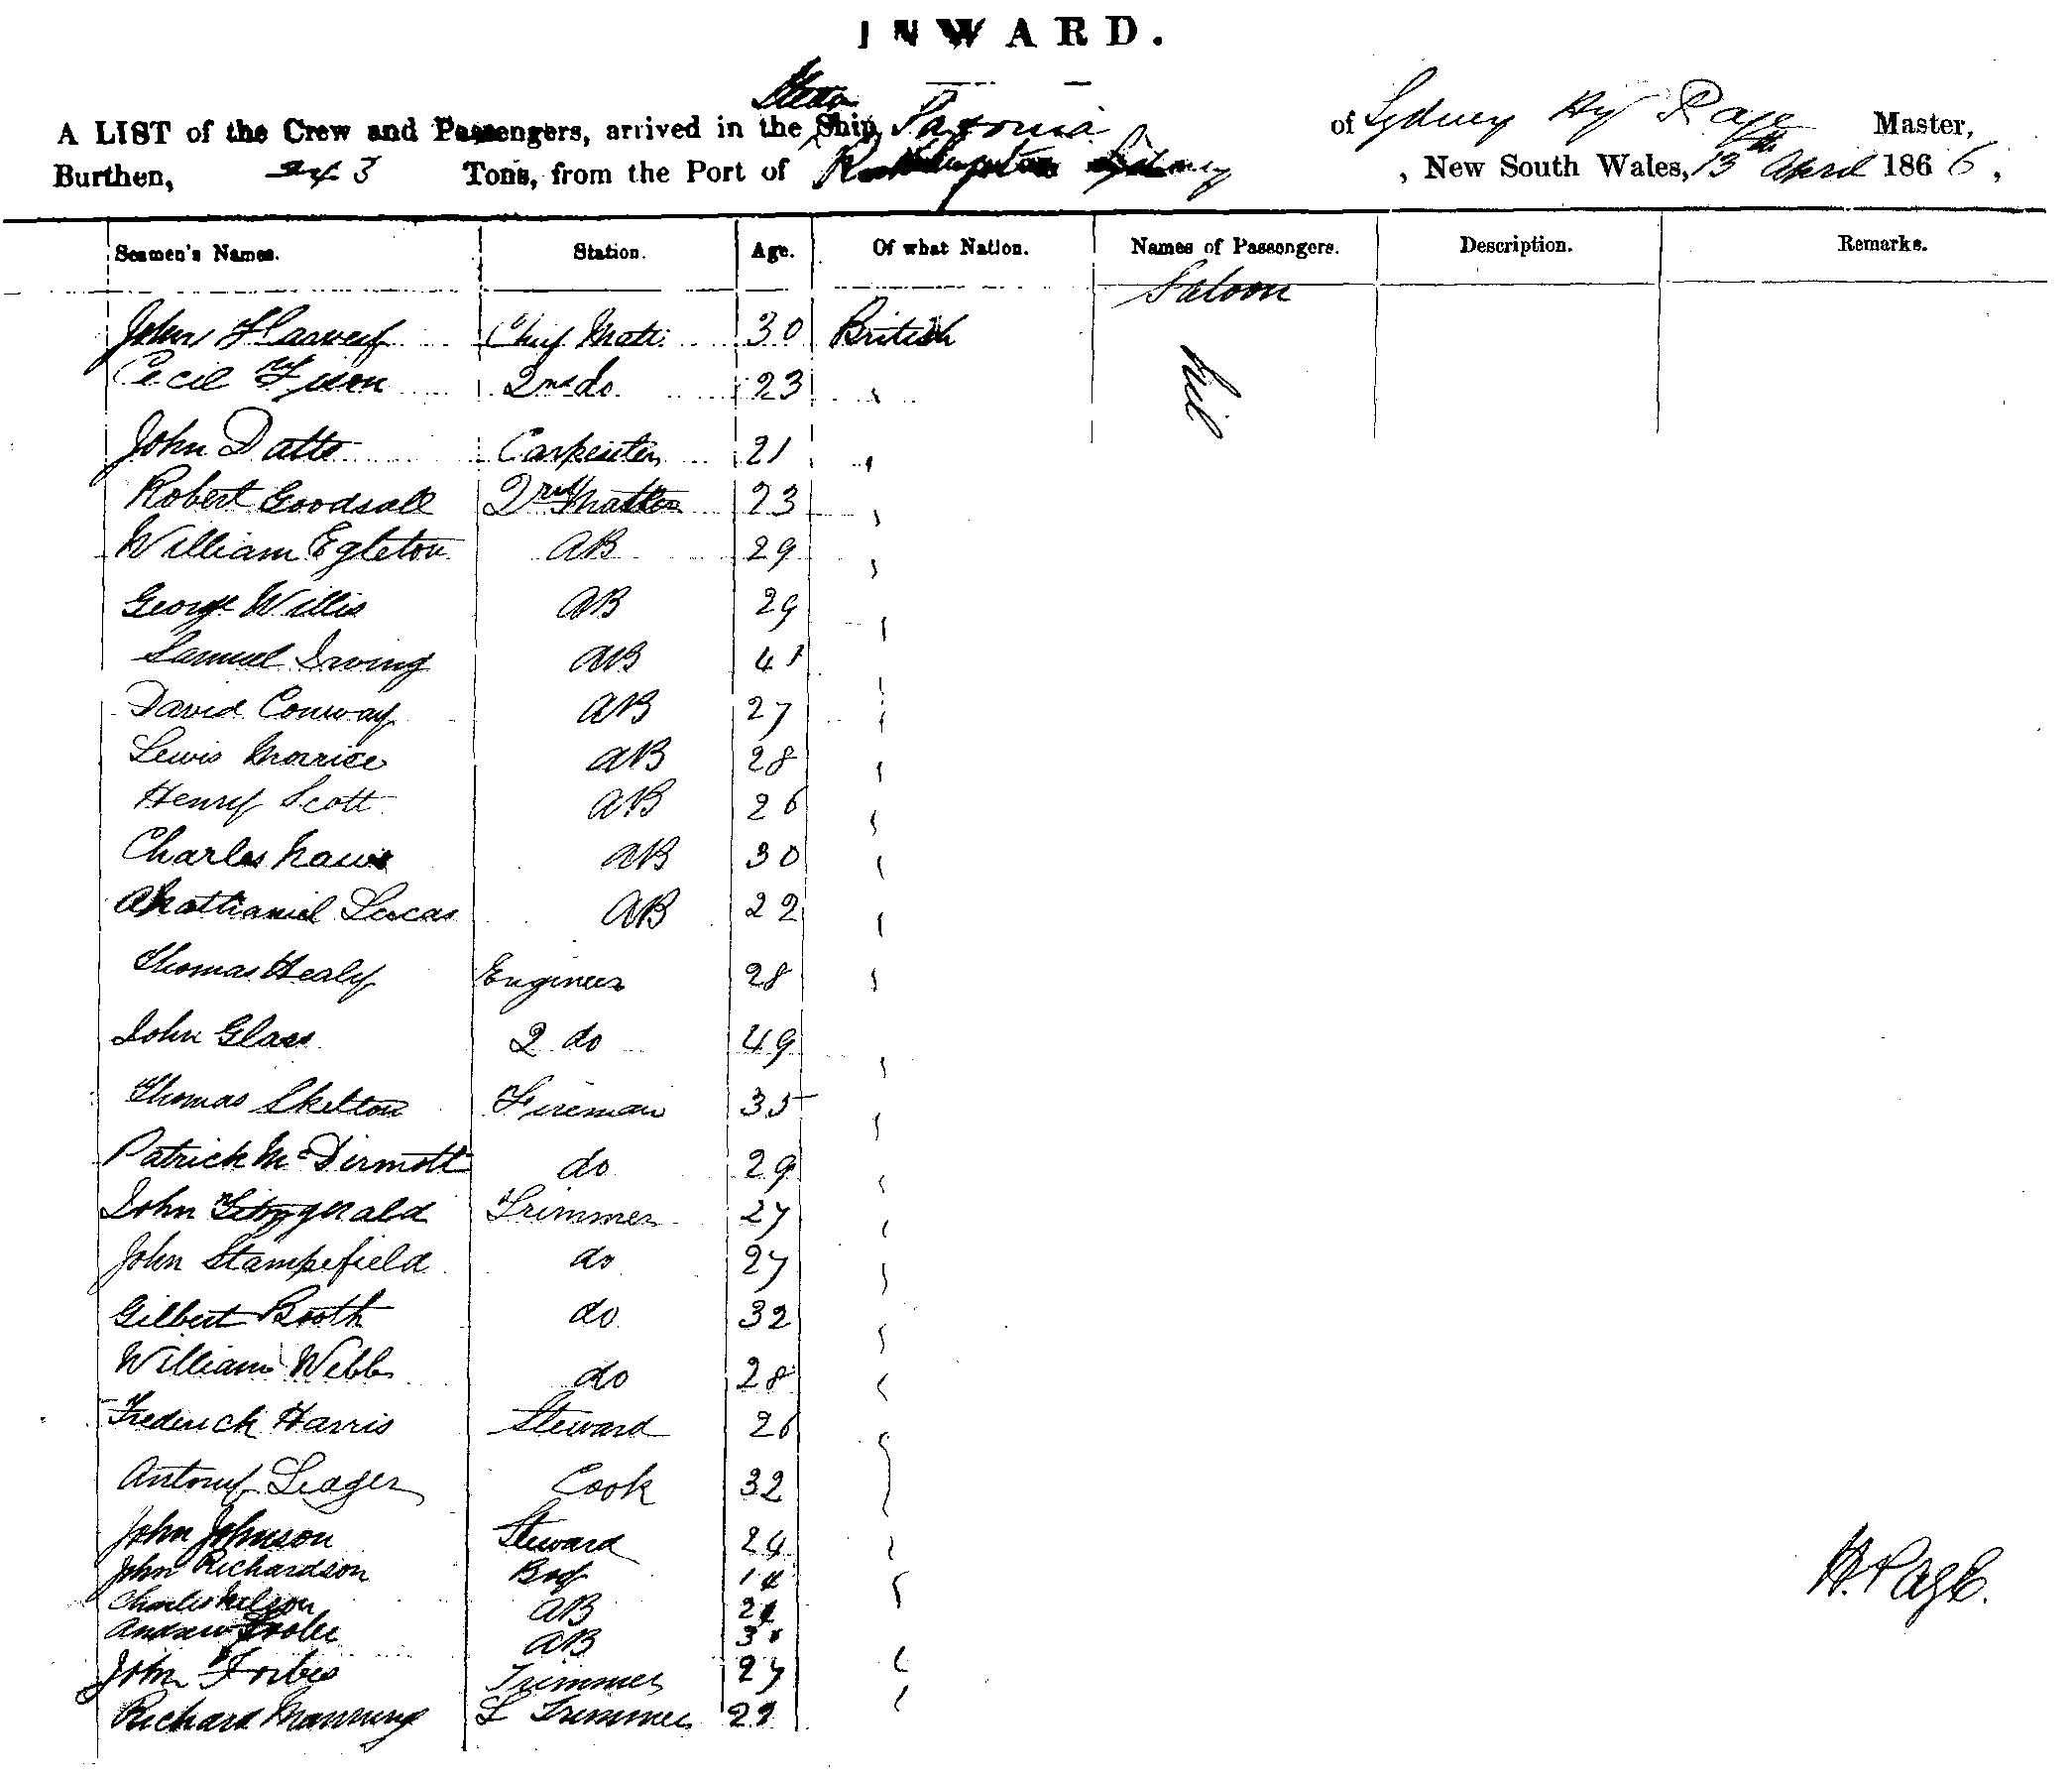 INWARD.
A LIST of the Crew and Passengers, arrived in the Ship of Sydney Hy Page Master,
Burthen, 3 Tons, from the Port of Sydney , New South Wales, 13th April 1866,
Seamen's Names. Station. Age. Of what Nation. Names of Passengers. Description. Remarks.
Saloon
John Harvey Chief Mate 30 British
Nil
Cecil 2nd do 23
John Datts Carpenter 21
Robert Goodsall 23
William Egleton AB 29
George Willis AB 29
Samuel Irving AB 41
David Conway AB 27
Lewis Morrice AB 28
Henry Scott AB 26
Charles AB 30
Nathaniel Lucas AB 22
Thomas Healy Engineer 28
John Glass 2 do 49
Thomas Skelton Fireman 35
Patrick McDirmott do 29
John Fitzgerald Trimmer 27
John Stampefield do 27
Gilbert Booth do 32
William Webb do 28
Frederick Harris Steward 26
Antony Leager Cook 32
John Johnson Steward 24
John Richardson Boy 14
Charles Nelson AB
Andrew AB
John Forbes Trimmer 27
Richard Manning Trimmer 22
H. Page.